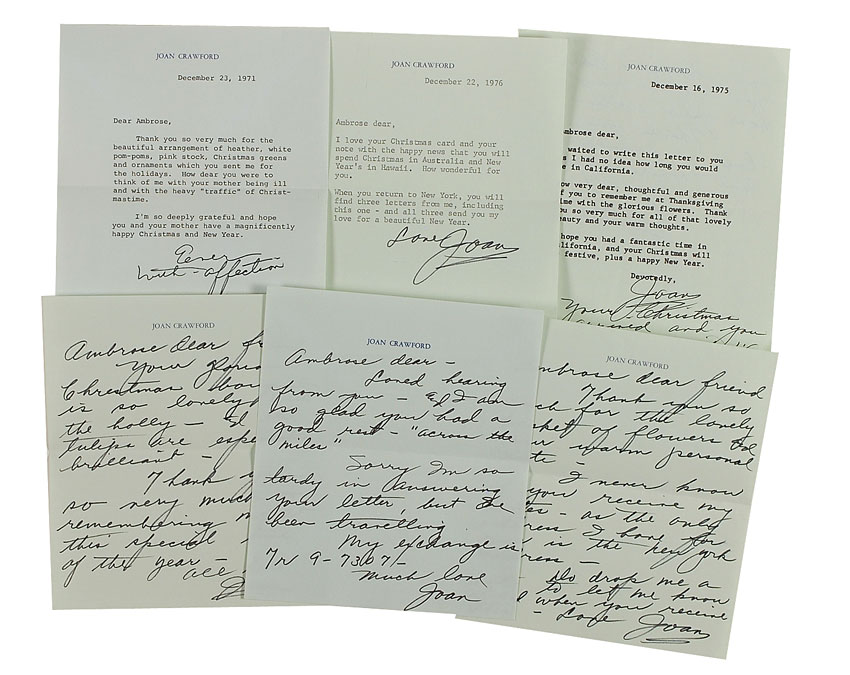 JOAN CRAWFORD
December 23, 1971
Dear Ambrose,
Thank you so very much for the
beautiful arrangement of heather, white
pom-poms, pink stock, Christmas greens
and ornaments which you sent me for
the holidays. How dear you were to
think of me with your mother being ill
and with the heavy "traffic" of Christ-
mastime.
I'm so deeply grateful and hope
you and your mother have a magnificently
happy Christmas and New Year.
Ever
with - affection
JOAN CRAWFORD
December 22, 1976
Ambrose dear,
I love your Christmas card and your
note with the happy news that you will
spend Christmas in Australia and New
Year's in Hawaii. How wonderful for
you.
When you return to New York, you will
find three letters from me, including
this one - and all three send you my
love for a beautiful New Year.
Love Joan
JOAN CRAWFORD
December 16, 1975
mbrose dear,
waited to write this letter to you
s I had no idea how long you would
e in California.
ow very dear, thoughtful and generous
f you to remember me at Thanksgiving
ime with the glorious flowers. Thank
ou so very much for all of that lovely
eauty and your warm thoughts.
hope you had a fantastic time in
lifornia, and your Christmas will
festive, plus a happy New Year.
Devotedly,
Joan
Your Christmas
arrived and you
JOAN CRAWFORD
Ambrose dear fr
Your glorio
Christmas bo
is so lovely
the holly -
tulips are espe
brilliant -
Thank y
so very much
remembering m
this special
of the year -
all
JOAN CRAWFORD
Ambrose dear -
Loved hearing
from you - & I am
so glad you had a
good rest - "across the
miles"
Sorry Im so
tardy in answering
your letter, but Ive
been travelling
My exchange is
Tr 9-7307 -
Much love
Joan
JOAN CRAWFORD
mbrose dear friend
Thank you so
ch for the lovely
sket of flowers and
ur warm personal
te -
I never know
you receive my
es - as the only
ress I have for
is the New York
ress -
Do drop me a
to let me know
when you receive
- Love Joan